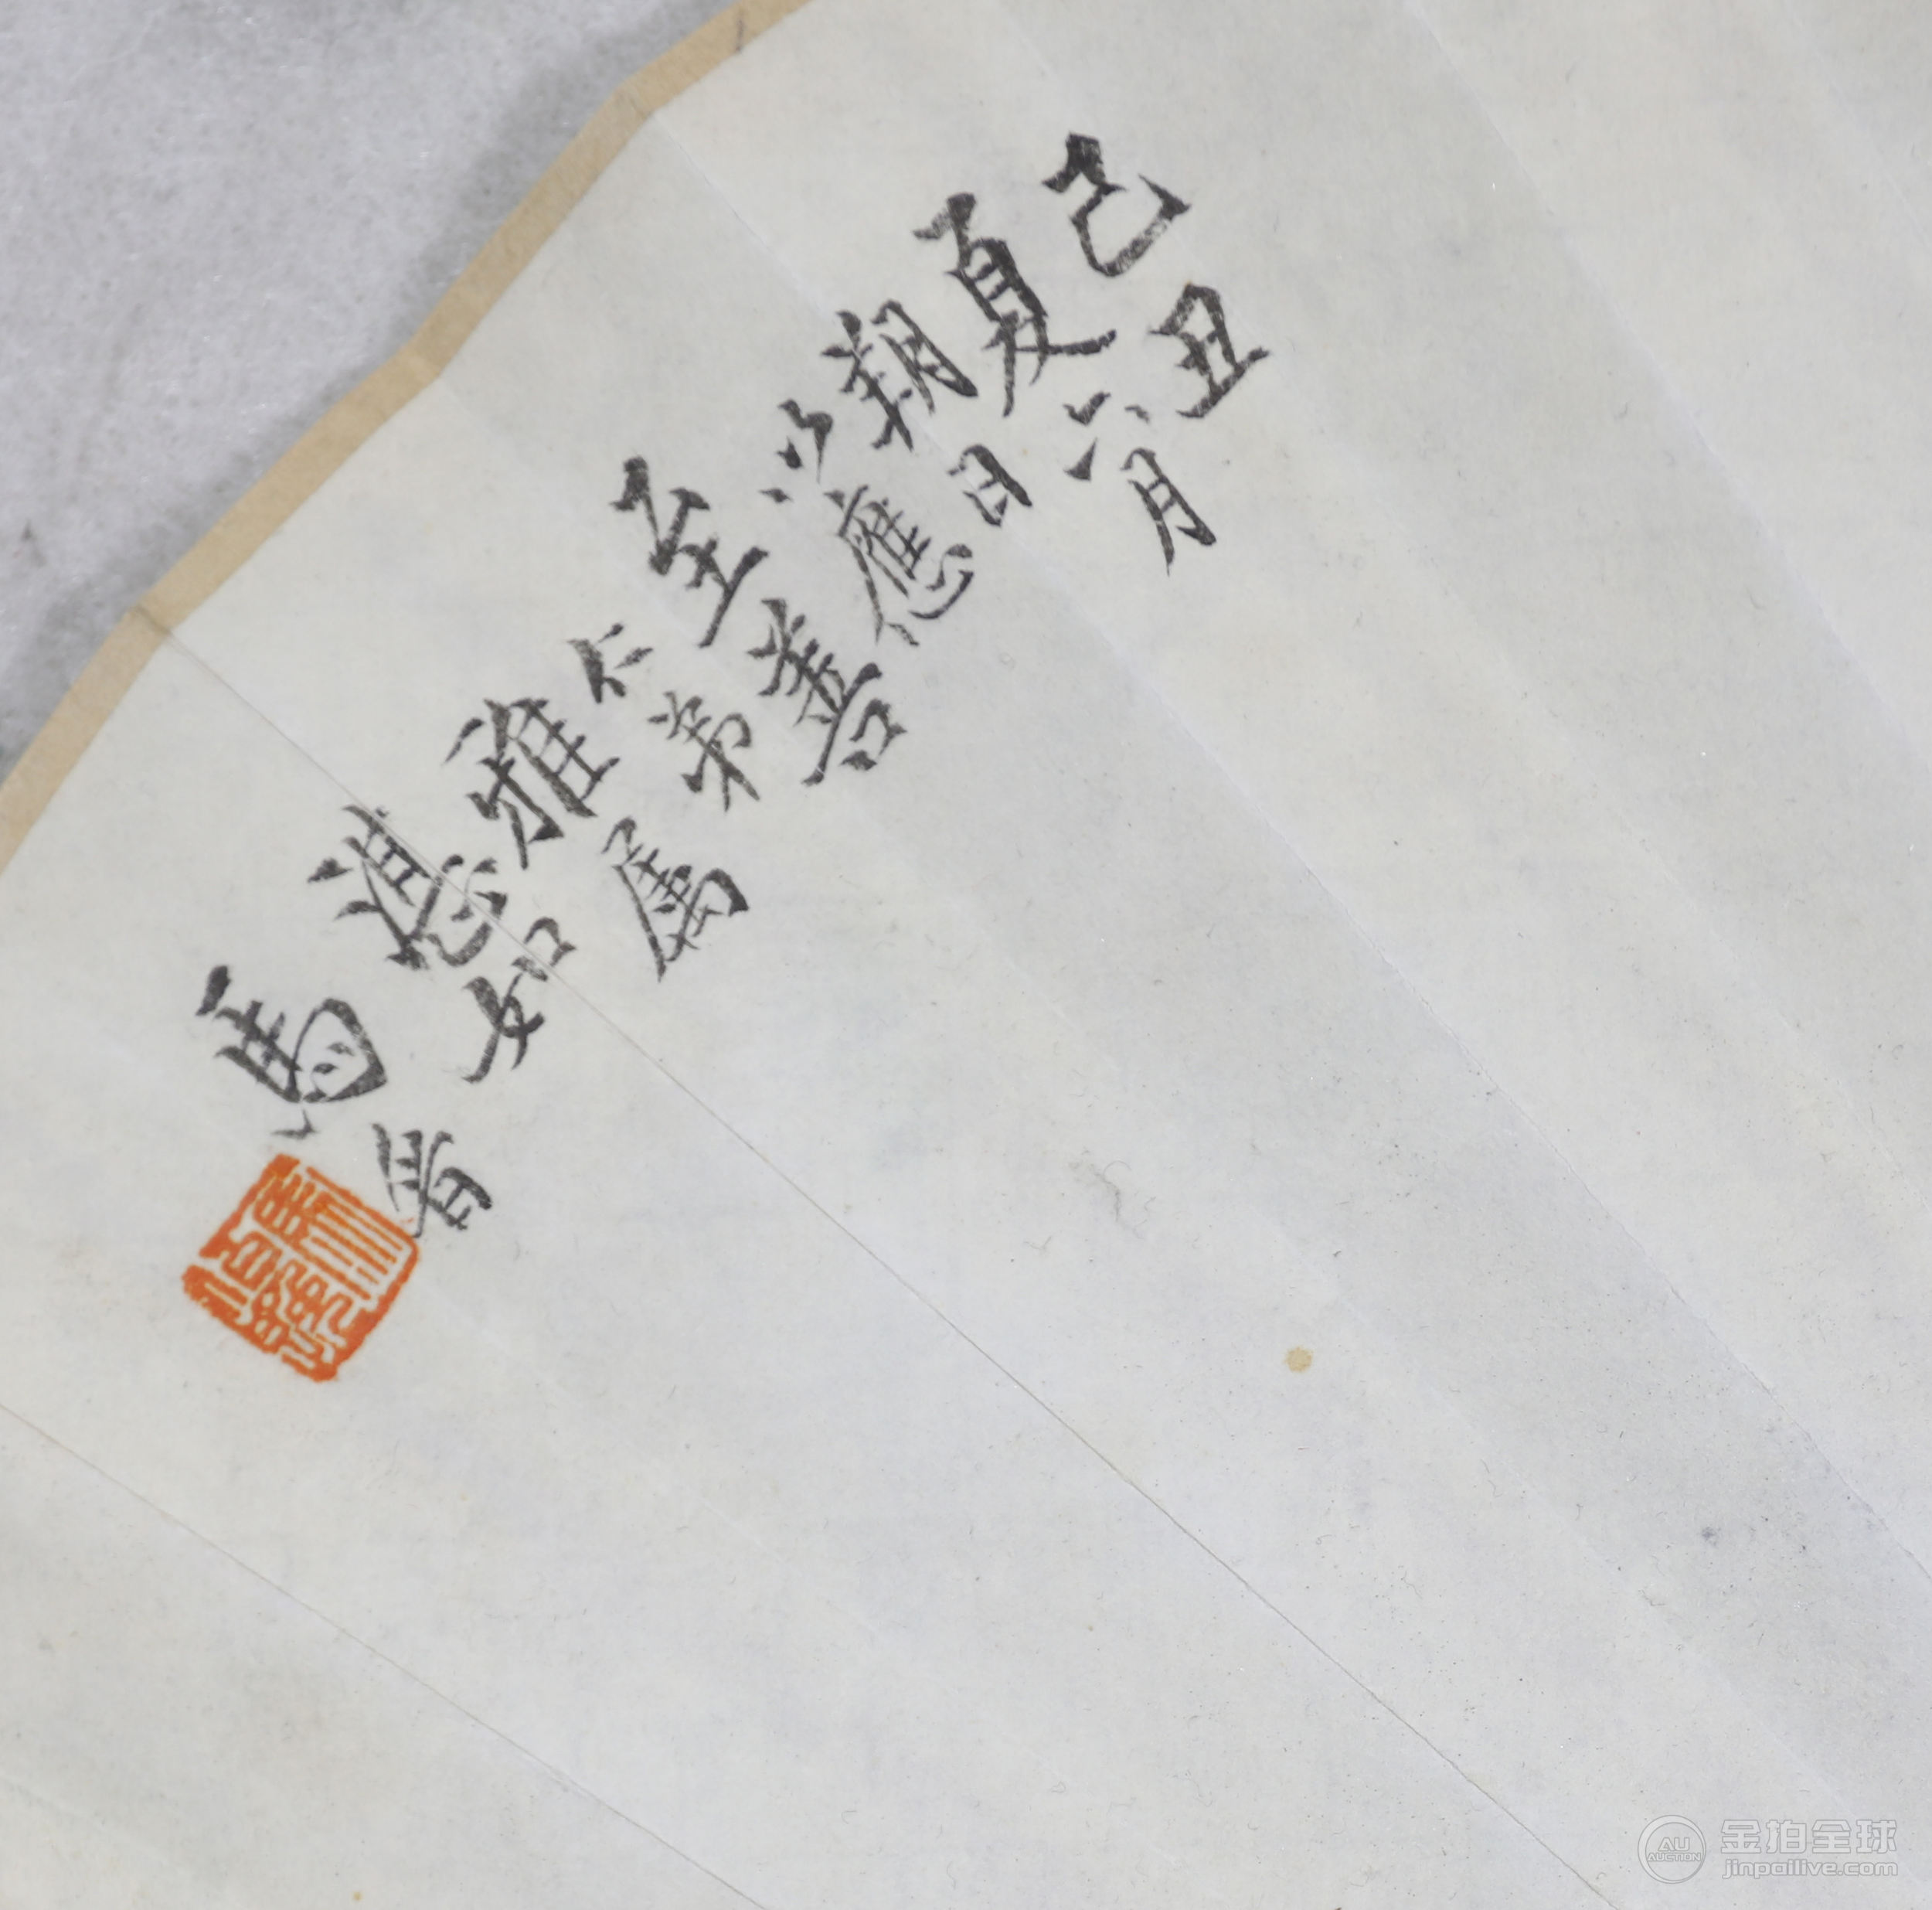 己丑
夏六月
朔日
以應
至善
仁弟
雅属
湛如
馬晋
金拍全球
jinpailive.com
AU
AUCTION